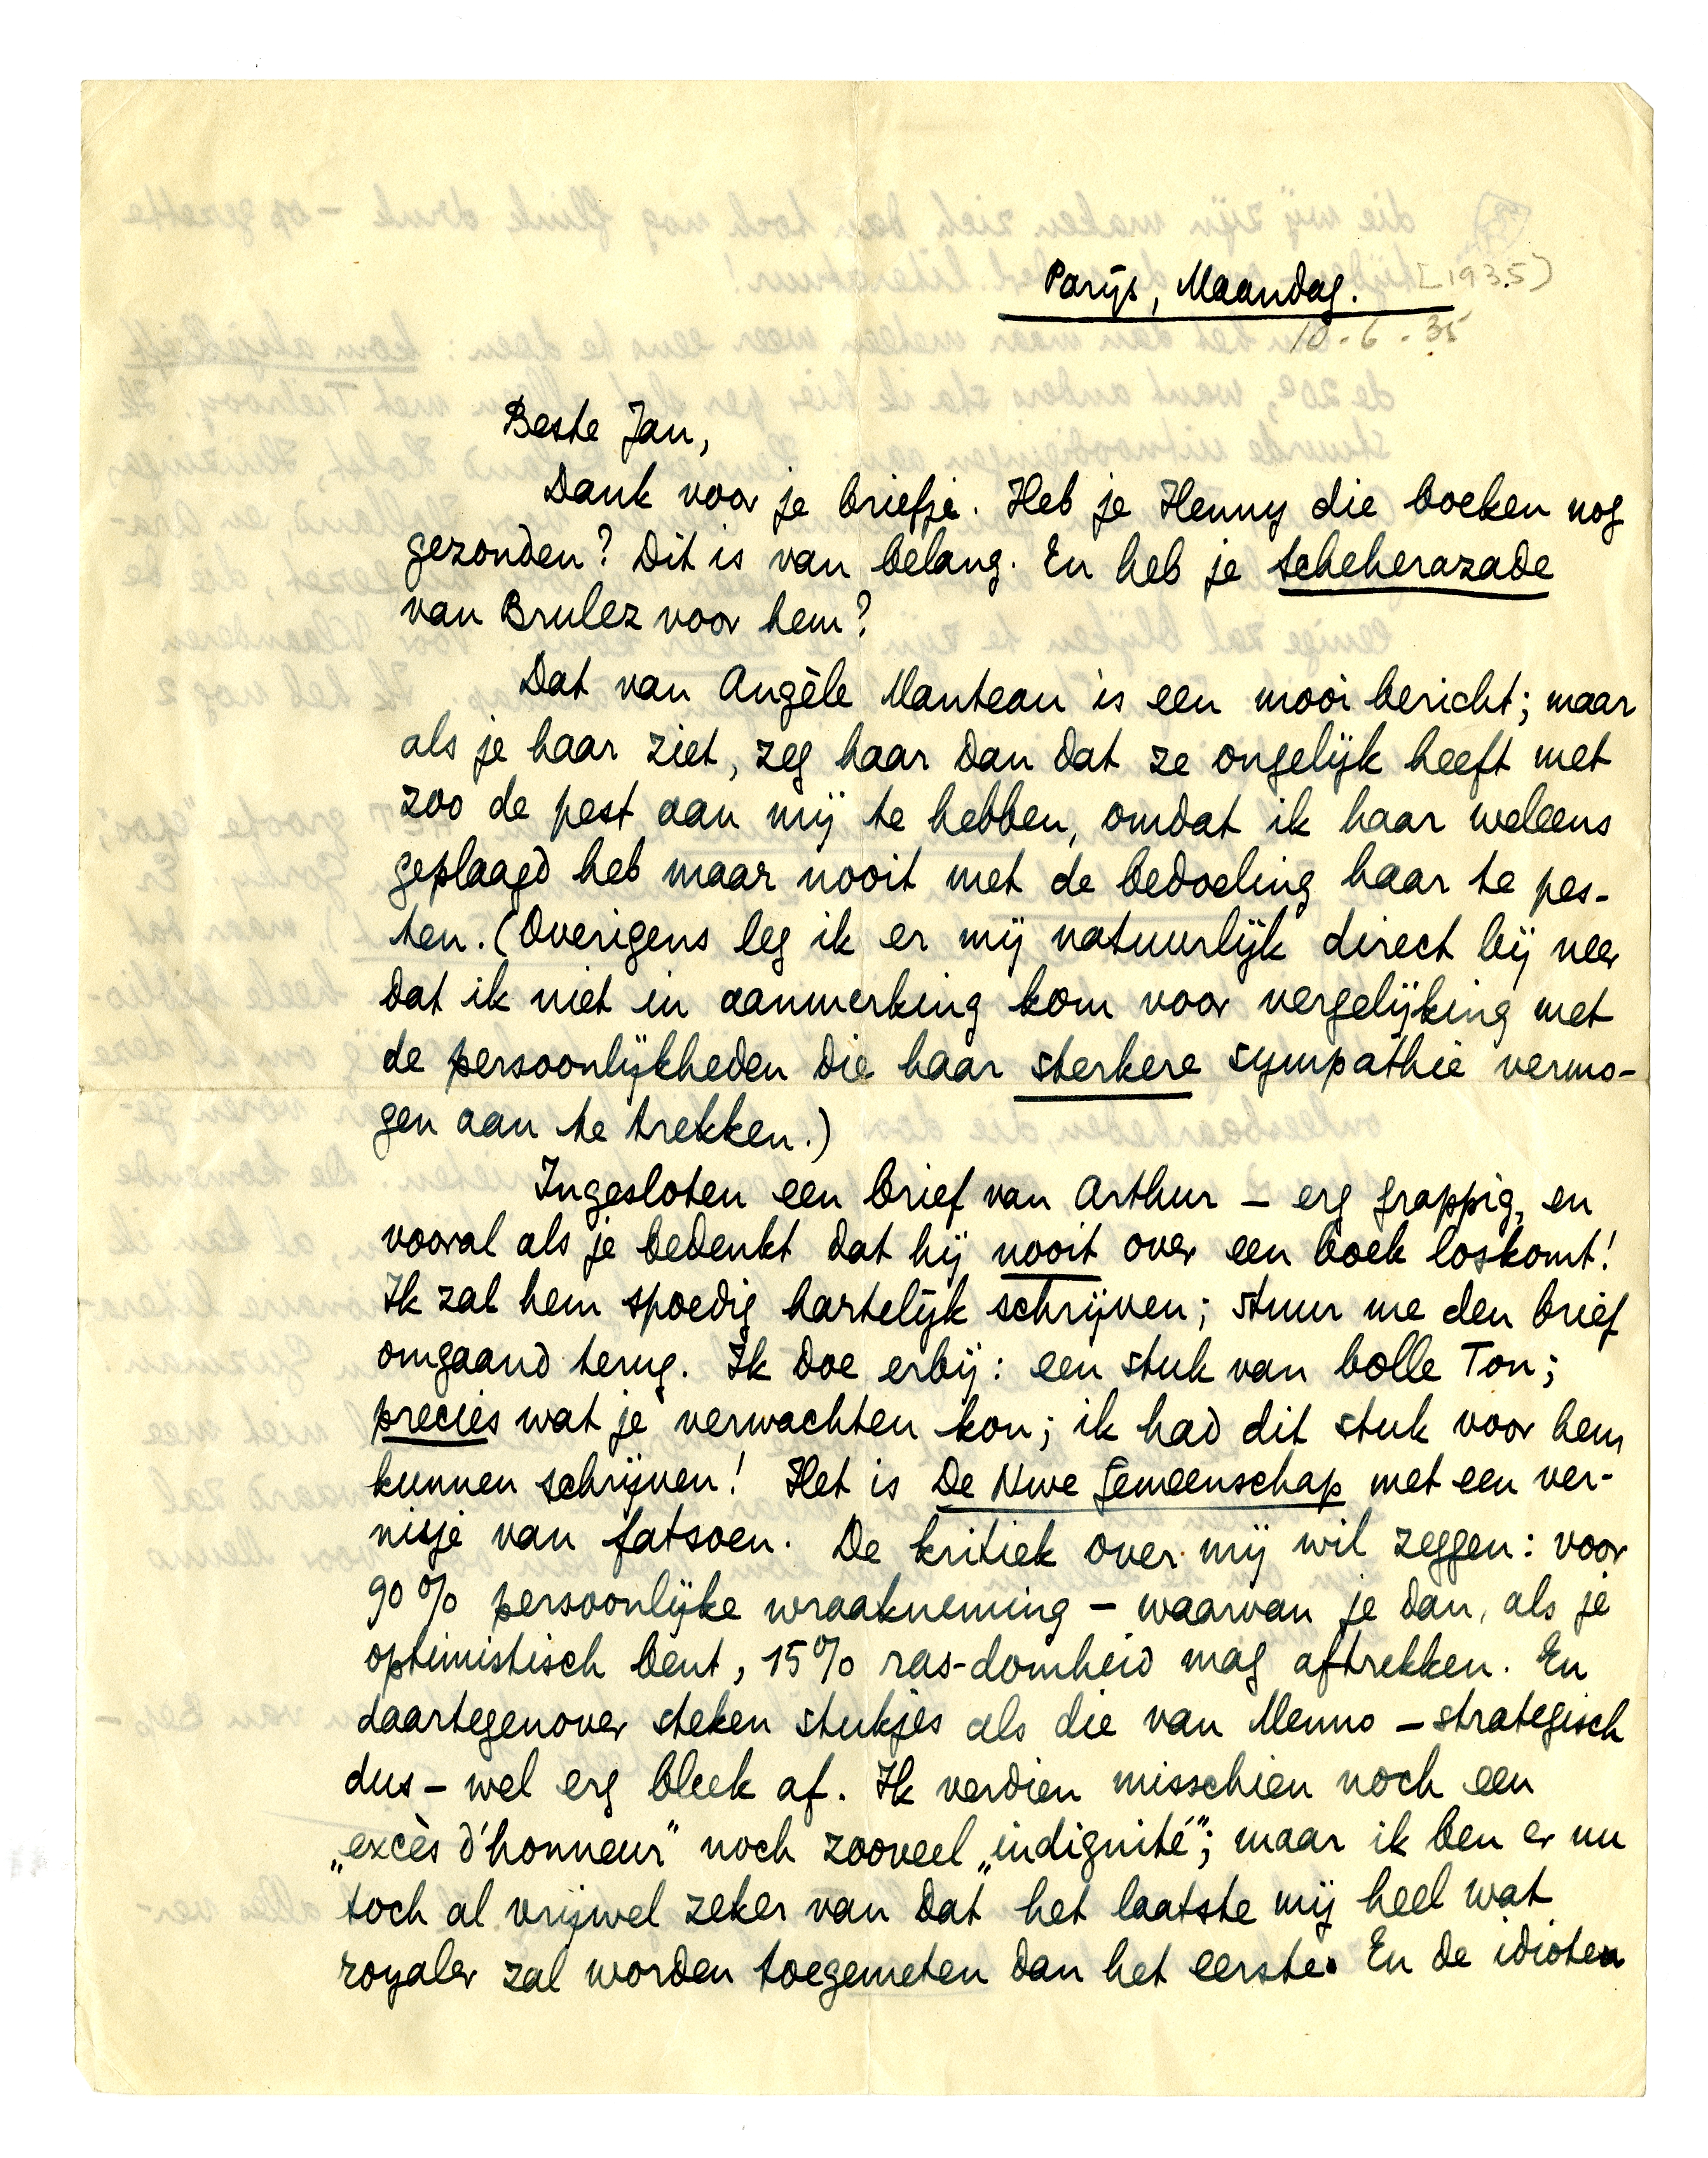 Parijs, Maandag. [1935)
10.6.35
Beste Jan,
Dank voor je briefje. Heb je Henny die boeken nog
gezonden? Dit is van belang. En heb je Scheherazade
van Brulez voor hem?
Dat van Angèle Manteau is een mooi bericht; maar
als je haar ziet, zeg haar dan dat ze ongelijk heeft met
zoo de pest aan mij te hebben, omdat ik haar weleens
geplaagd heb maar nooit met de bedoeling haar te pes-
ten. (Overigens leg ik er mij natuurlijk direct bij neer
dat ik niet in aanmerking kom voor vergelijking met
de persoonlijkheden die haar sterkere sympathie vermo-
gen aan te trekken.)
Ingesloten een brief van Arthur – erg grappig, en
vooral als je bedenkt dat hij nooit over een boek loskomt!
Ik zal hem spoedig hartelijk schrijven; stuur me den brief
omgaand terug. Ik doe erbij: een stuk van bolle Ton;
precies wat je verwachten kon; ik had dit stuk voor hem
kunnen schrijven! Het is De Nwe Gemeenschap met een ver-
nisje van fatsoen. De kritiek over mij wil zeggen: voor
90% persoonlijke wraakneming – waarvan je dan, als je
optimistisch bent, 15% ras-domheid mag aftrekken. En
daartegenover steken stukjes als die van Menno – strategisch
dus – wel erg bleek af. Ik verdien misschien noch een
„excès d'honneur" noch zooveel „indignité"; maar ik ben er nu
toch al vrijwel zeker van dat het laatste mij heel wat
royaler zal worden toegemeten dan het eerste. En de idioten